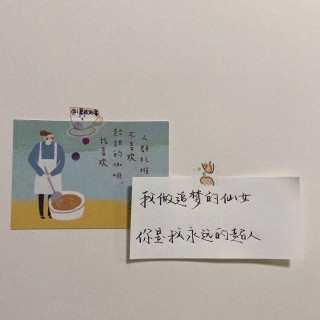 我喜欢
超甜的咖啡,
不喜欢
人群扎堆
我做追梦的仙女
你是我永远的人